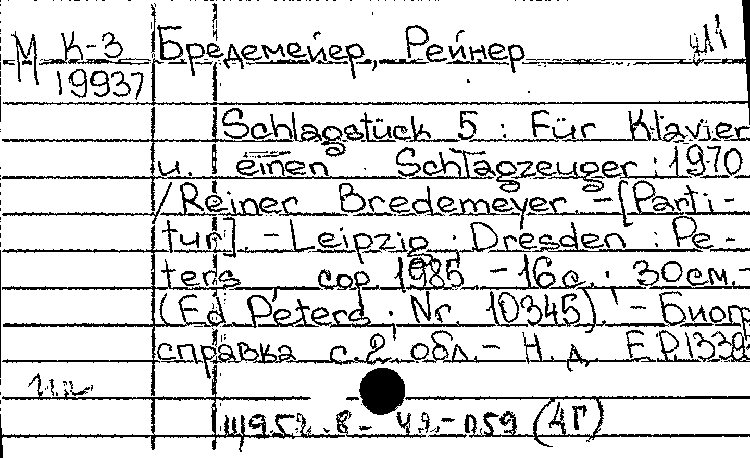 М К-3 Бредемейер, Рейнер
19937
Schlagstück 5 : Für Klavier
u. einen Schlagzeuger : 1970
/ Reiner Bredemeyer. - [Parti-
tur]. - Leipzig ; Dresden : Pe-
ters, cop. 1985. - 16 с. ; 30 см. -
(Ed. Peters ; Nr. 10345). - Биогр.
справка с. 2 обл. - Н. д. E.P. 1339
Ш952.8-42-059 (4Г)